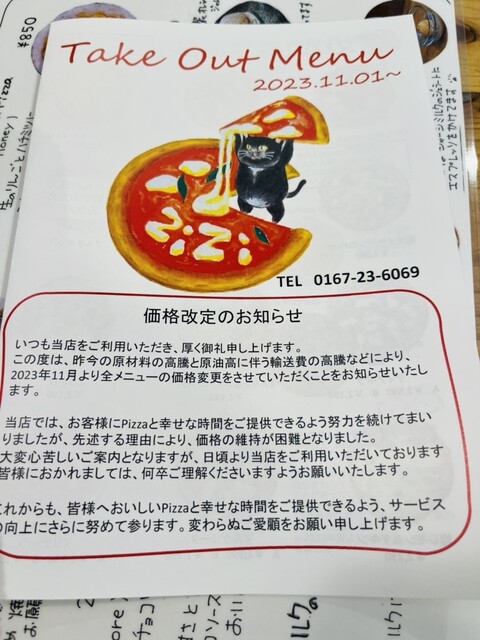 ¥850
Take Out Menu
2023.11.01~
ZiZi
TEL 0167-23-6069
価格改定のお知らせ
いつも当店をご利用いただき、厚く御礼申し上げます。
この度は、昨今の原材料の高騰と原油高に伴う輸送費の高騰などにより、
2023年11月より全メニューの価格変更をさせていただくことをお知らせいたし
ます。
当店では、お客様にPizzaと幸せな時間をご提供できるよう努力を続けてまい
りましたが、先述する理由により、価格の維持が困難となりました。
大変心苦しいご案内となりますが、日頃より当店をご利用いただいております
皆様におかれましては、何卒ご理解くださいますようお願いいたします。
これからも、皆様へおいしいPizzaと幸せな時間をご提供できるよう、サービス
の向上にさらに努めて参ります。変わらぬご愛顧をお願い申し上げます。
Pizza
Honey)
生のりんごとハチミツ
エスプレッソをかけてます
チョコ
ソース